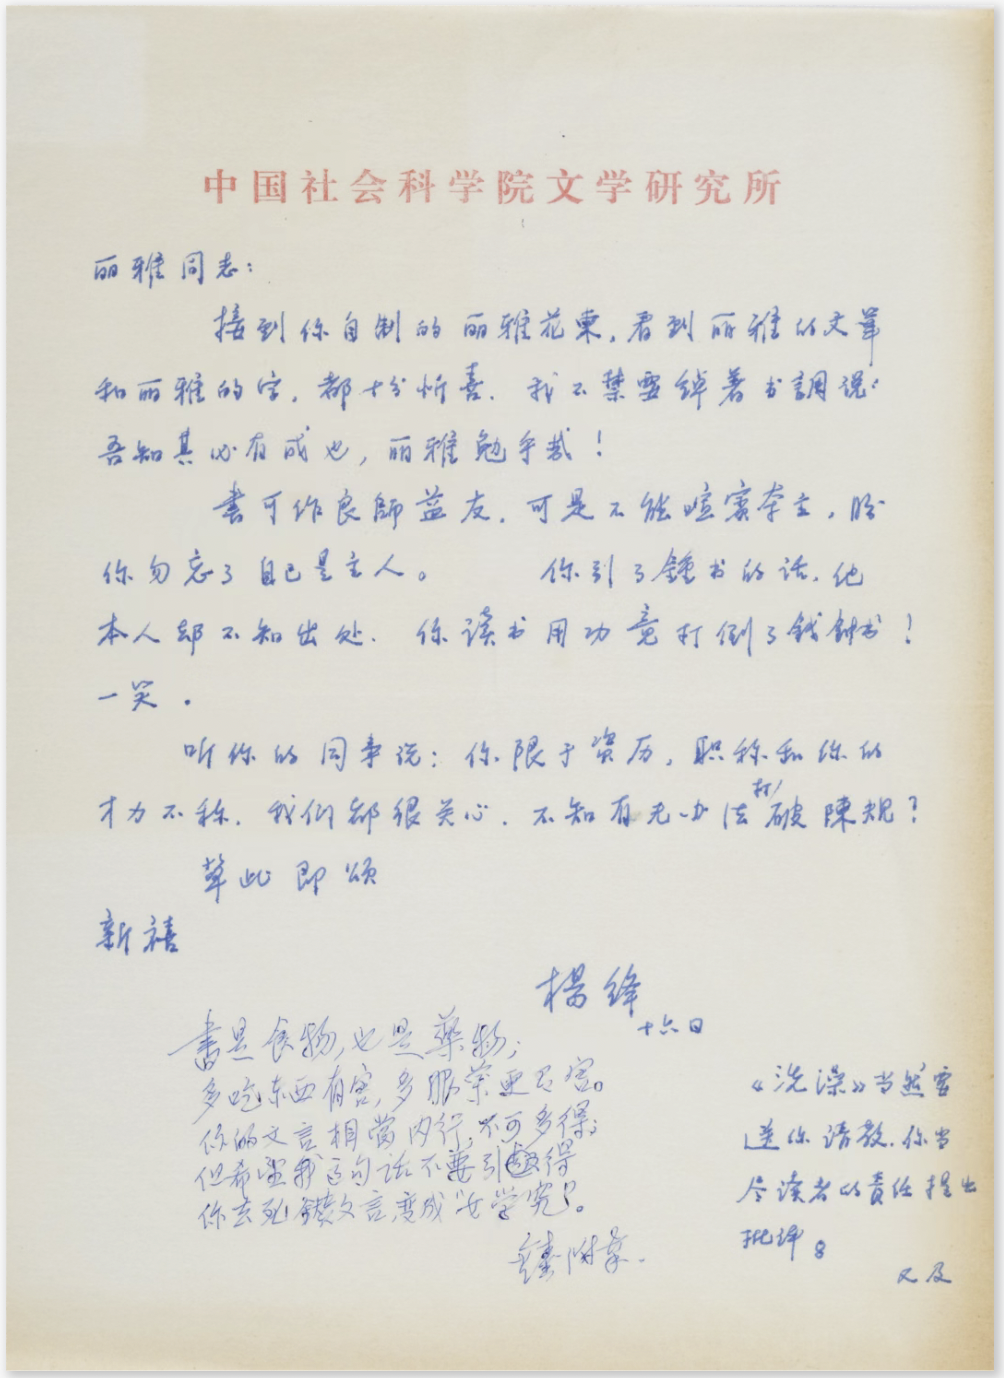 中国社会科学院文学研究所
丽雅同志：
接到你自制的丽雅花柬，看到丽雅的文筆
和丽雅的字，都十分忻喜．我不禁要绰著书調说：
吾知其必有成也，丽雅勉乎哉！
書可作良師益友．可是不能喧賓奪主，盼
你勿忘了自己是主人。 你引了鍾书的话．他
本人却不知出处．你读书用功竟打倒了钱鍾书！
一笑．
听你的同事说：你限于资历，职称和你的
才力不称．我们都很关心．不知有无办法打破陳规？
草此即颂
新禧
楊绛
十六日
書是食物，也是藥物；
多吃东西有害，多服药更有害。
你的文言相當内行，不可多得；
但希望我这句话不要引得
你去死鑽文言，變成“女学究”。
鍾書附筆．
《洗澡》当然要
送你请教．你当
尽读者的責任提出
批评。
又及